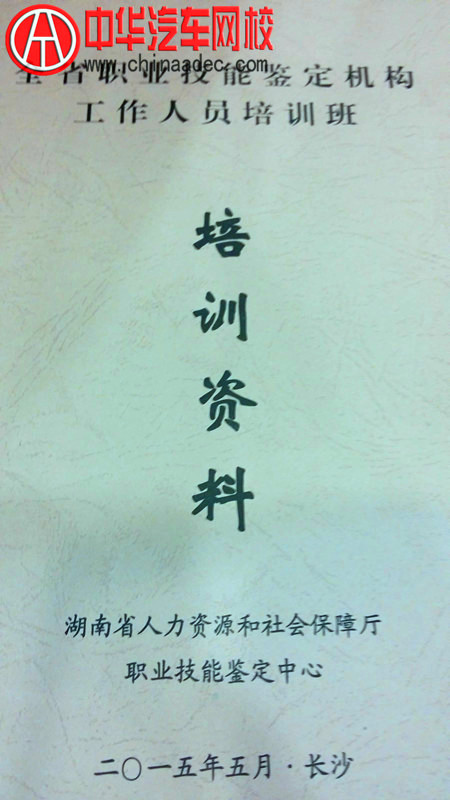 中华汽车网校
www.chinaadec.com
全省职业技能鉴定机构
工作人员培训班
培
训
资
料
湖南省人力资源和社会保障厅
职业技能鉴定中心
二〇一五年五月·长沙